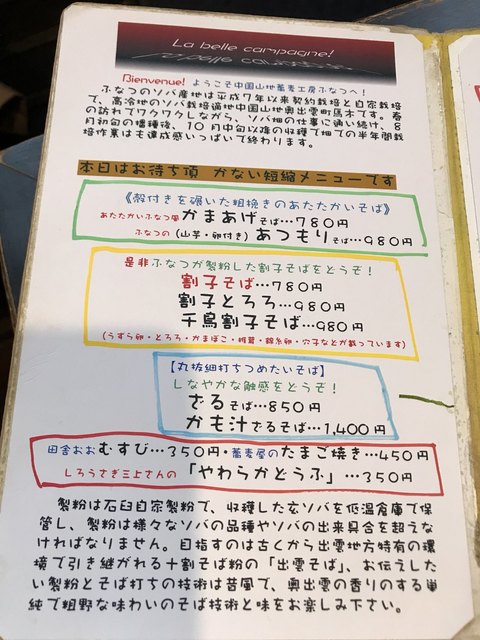 La belle campagne!
Bienvenue! ようこそ中国山地蕎麦工房ふなつへ!
ふなつのソバ産地は平成7年以来契約栽培と自家栽培
で、高冷地のソバ栽培適地中国山地奥出雲町馬木です。春
の訪れてワクワクしながら、ソバ畑の仕事に通い続け、8
月初旬の播種後、10月中旬以降の収穫で畑での半年間栽
培作業はも達成感いっぱいで終わります。
本日はお待ち頂 かない短縮メニューです
《殻付きを碾いた粗挽きのあたたかいそば》
あたたかいふなつ風 かまあげそば…780円
ふなつの(山芋・卵付き)あつもりそば…980円
是非ふなつが製粉した割子そばをどうぞ!
割子そば…780円
割子とろろ…980円
千鳥割子そば…980円
(うずら卵・とろろ・かまぼこ・椎茸・錦糸卵・穴子などが載っています)
【丸抜細打ちつめたいそば】
しなやかな触感をどうぞ!
ざるそば…850円
かも汁ざるそば…1,400円
田舎おおむすび…350円・蕎麦屋のたまご焼き…450円
しろうさぎ三上さんの「やわらかどうふ」…350円
製粉は石臼自家製粉で、収穫した玄ソバを低温倉庫で保
管し、製粉は様々なソバの品種やソバの出来具合を超えな
ければなりません。目指すのは古くから出雲地方特有の環
境で引き継がれる十割そば粉の「出雲そば」、お伝えした
い製粉とそば打ちの技術は昔風で、奥出雲の香りのする単
純で粗野な味わいのそば技術と味をお楽しみ下さい。